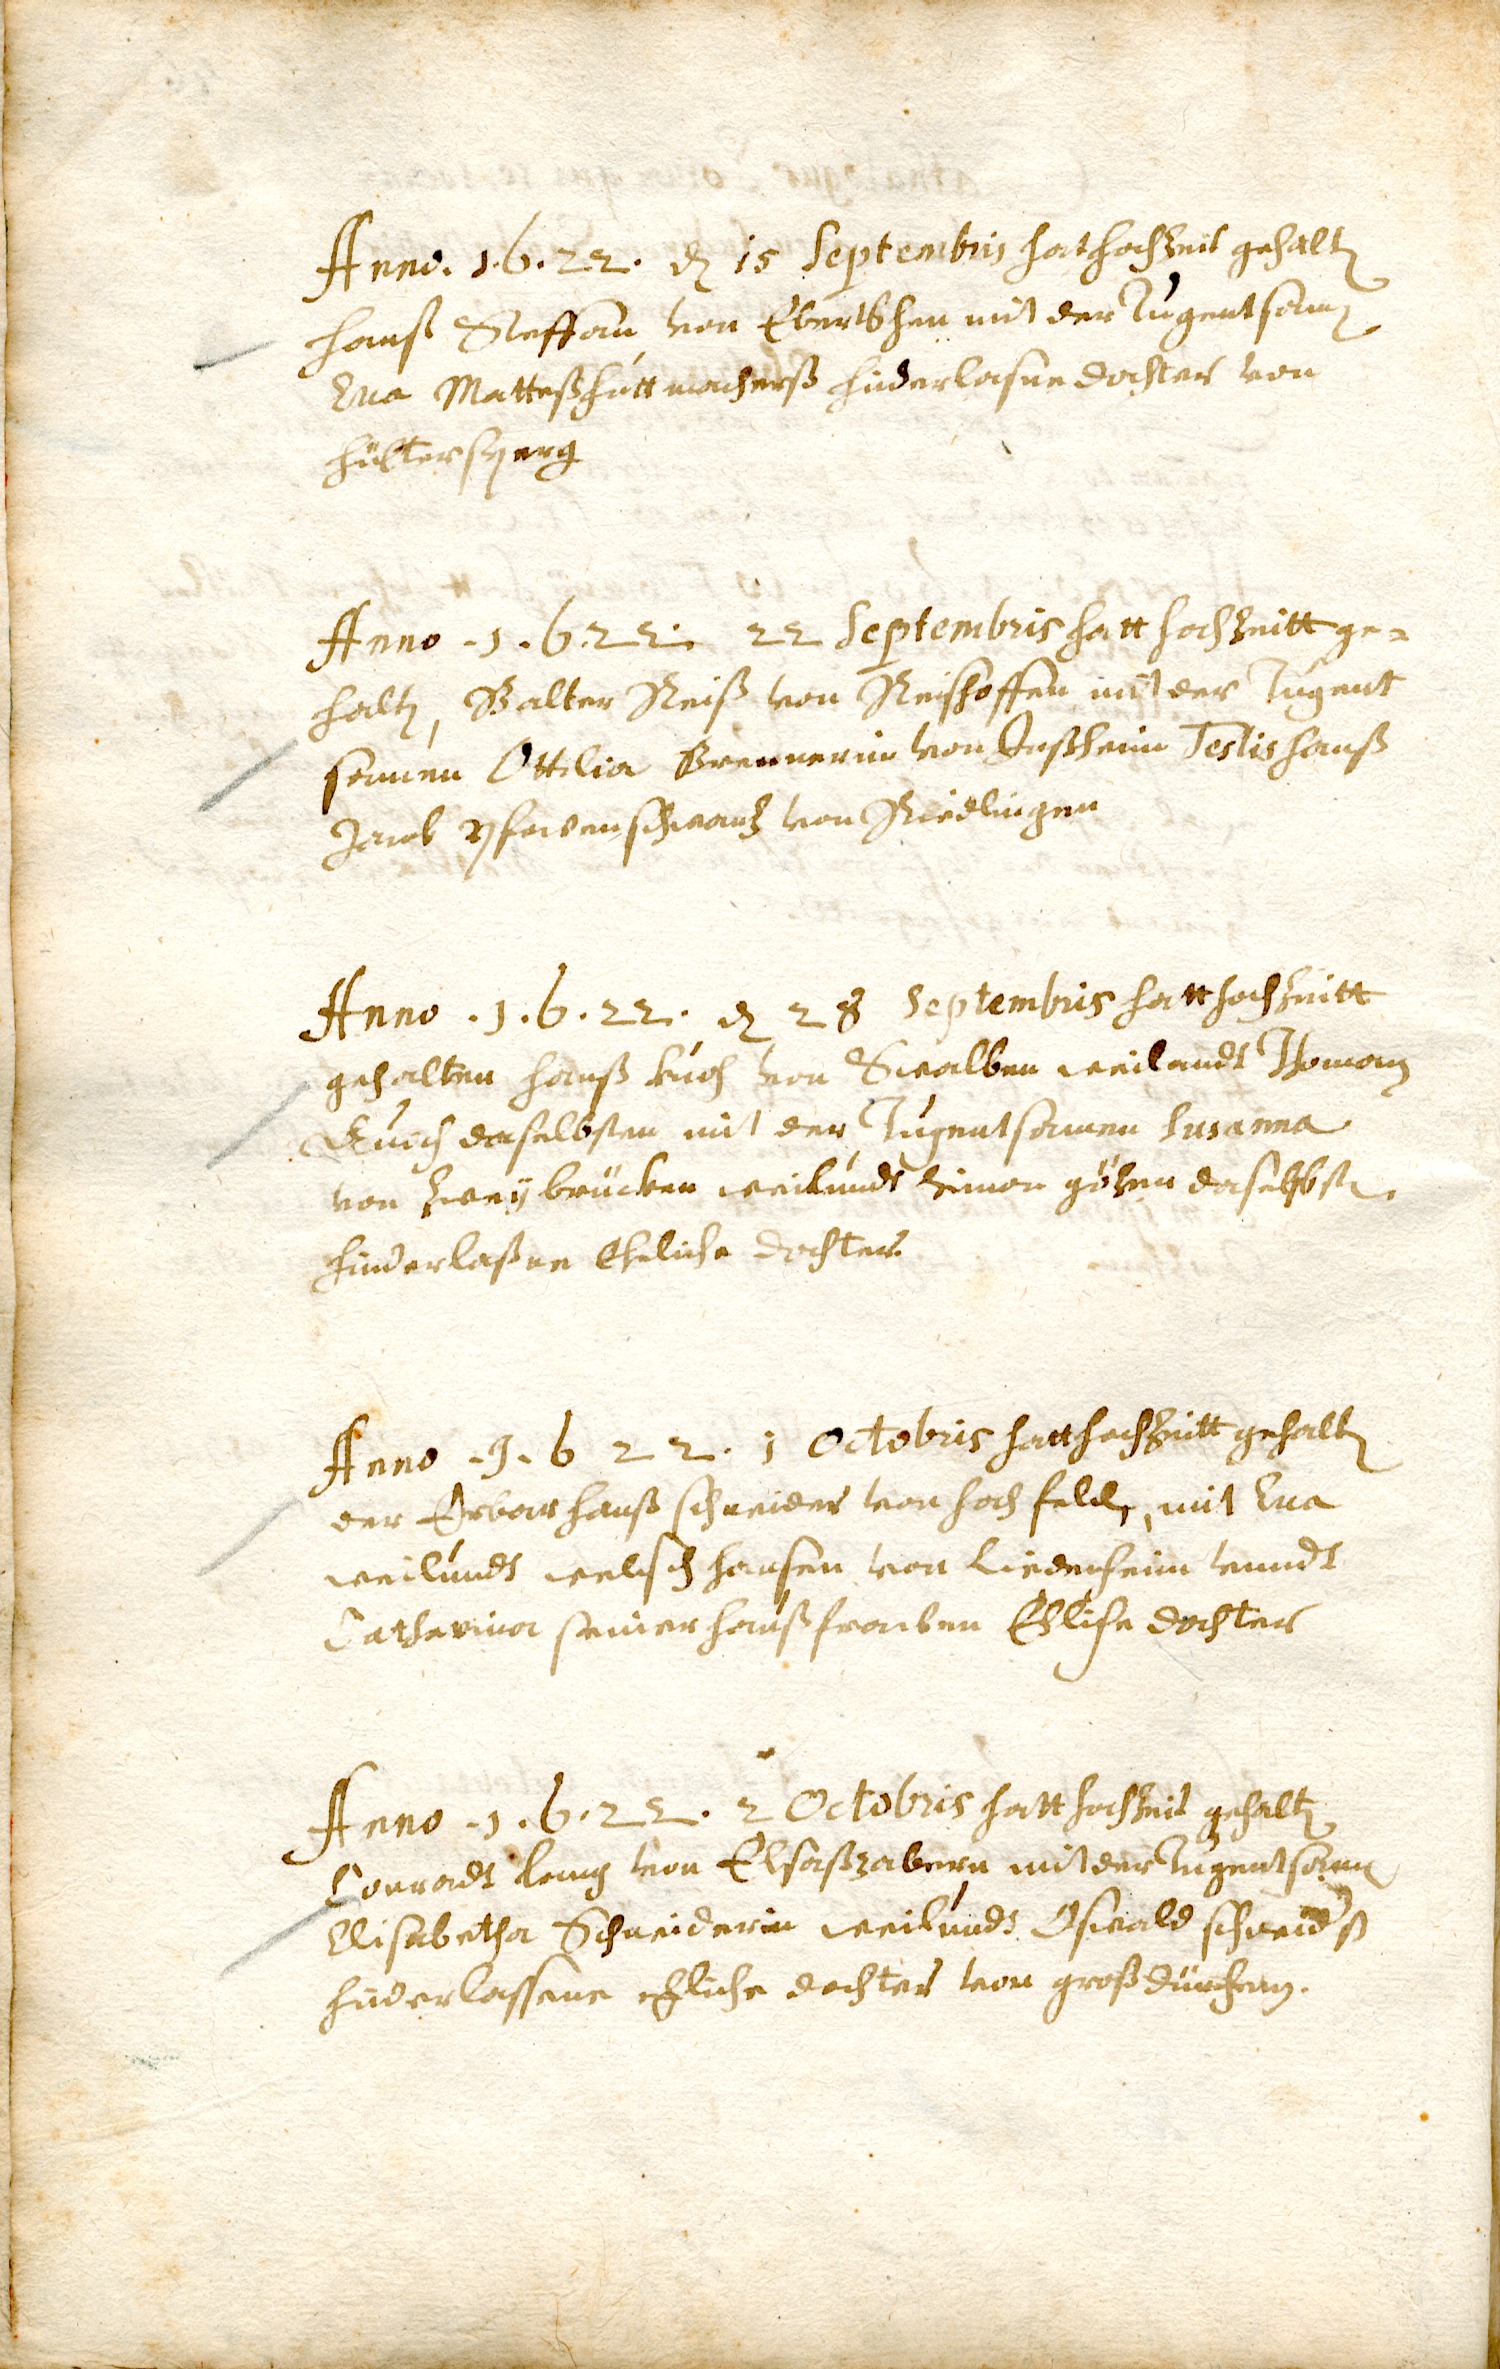 Anno. 1.6.22. dē 15 Septembris hat hochzeit gehaltē
Hanß Steffan von Ebertshen mit der Tugentsamē
Eua Matteß huttmacherß hinderlasne dochter von
Anno .1.6.22. 22 Septembris hatt hochzeitt ge-
haltē, Balter Reiß von Reishoffen mit der Tugent
samen Ottilia Brennerin von Testis Hanß
Jacob von Riedlingen
Anno .1.6.22. dē 28 Septembris hatt hochzeitt
gehalten Hanß Kuch von Swalben weilandt Thoman
Kuch daselbsten mit der Tugentsamen Susanna
von Zweybrücken weilundt Simon götzen daselbstē
hinderlaßne Eheliche dochter
Anno .1.6 22. 1 Octobris hatt hochzeitt gehaltē
der Erbar Hanß Schneider von Hochfeldē, mit Eua
weilundt welsch Hansen von Liedenheim vnndt
Catharina seiner haußfrawen Ehliche dochter
Anno .1.6.22. 2 Octobris hatt hochzeit gehaltē
Conradt Lang von Elsaßzabern mit der Tugentsamē
Elisabetha Schneiderin weilundt Oswald schneiderß
hinderlassene ehliche dochter von